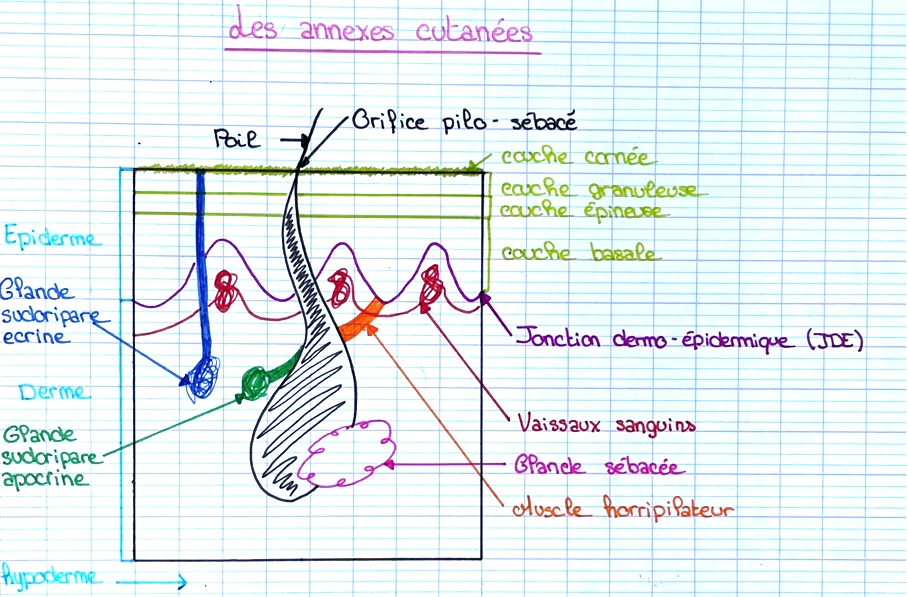 des annexes cutanées
Poil
Orifice pilo-sébacé
couche cornée
couche granuleuse
couche épineuse
couche basale
Epiderme
Glande
sudoripare
ecrine
Jonction dermo-épidermique (JDE)
Derme
Vaissaux sanguins
Glande
sudoripare
apocrine
Glande sébacée
Muscle horripilateur
hypoderme